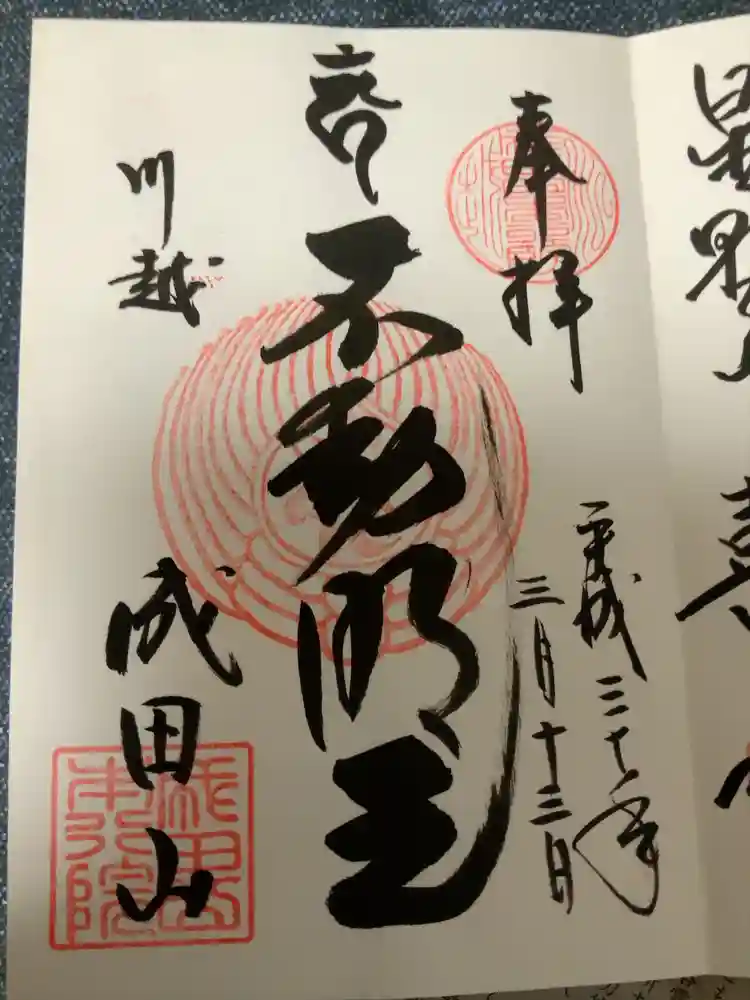 奉拝
平成三十年
三月十三日
不動明王
川越
成田山
成田山
本行院